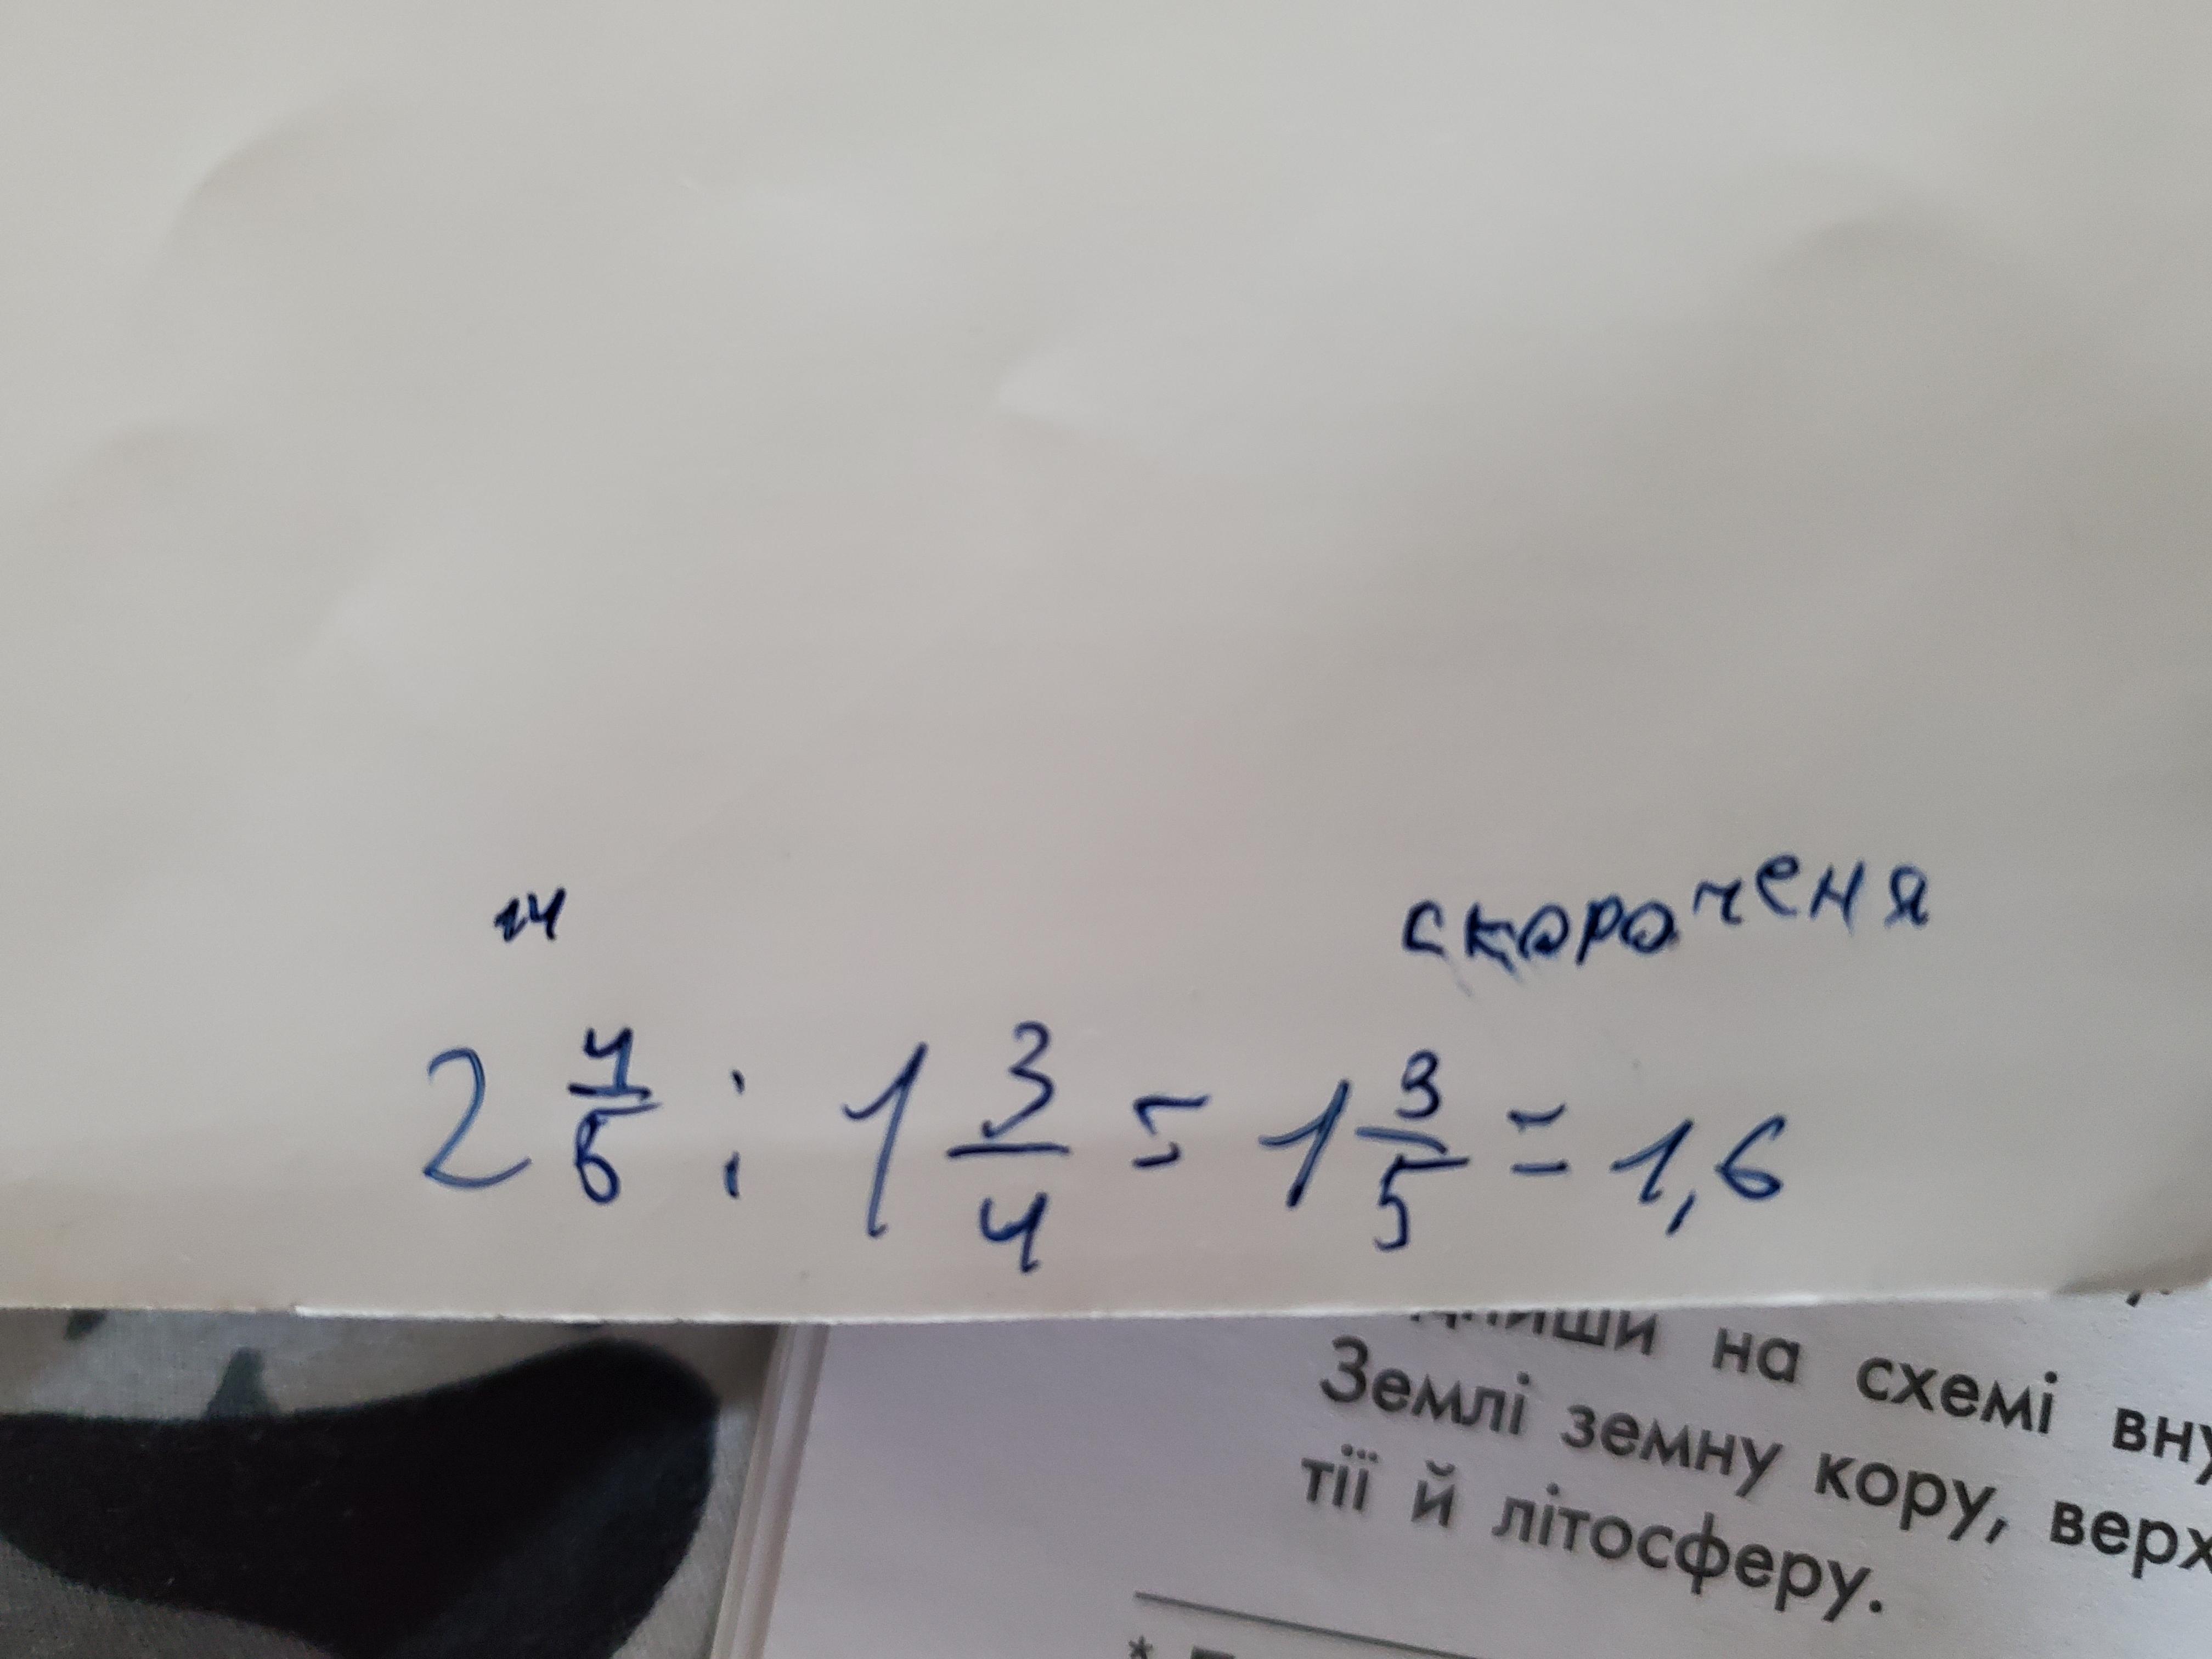 14
скороченя
2 4/5 : 1 3/4 = 1 3/5 = 1,6
на схемі
Землі земну кору, верх
тії й літосферу.
*